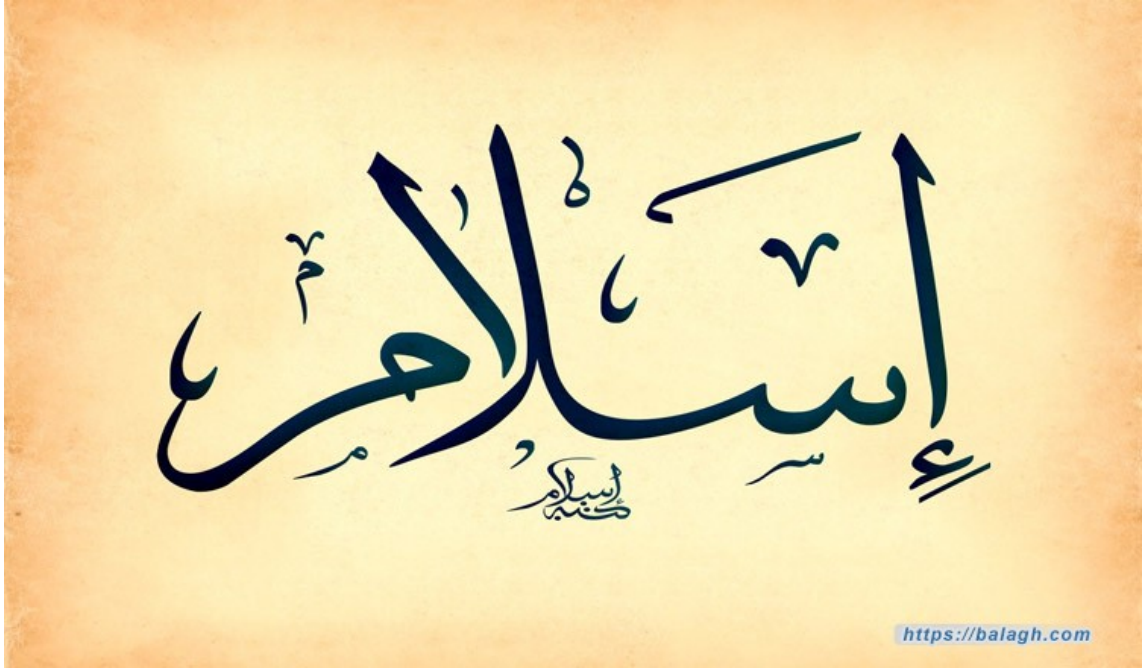 إِسَلام
كتبه إسلام
https://balagh.com